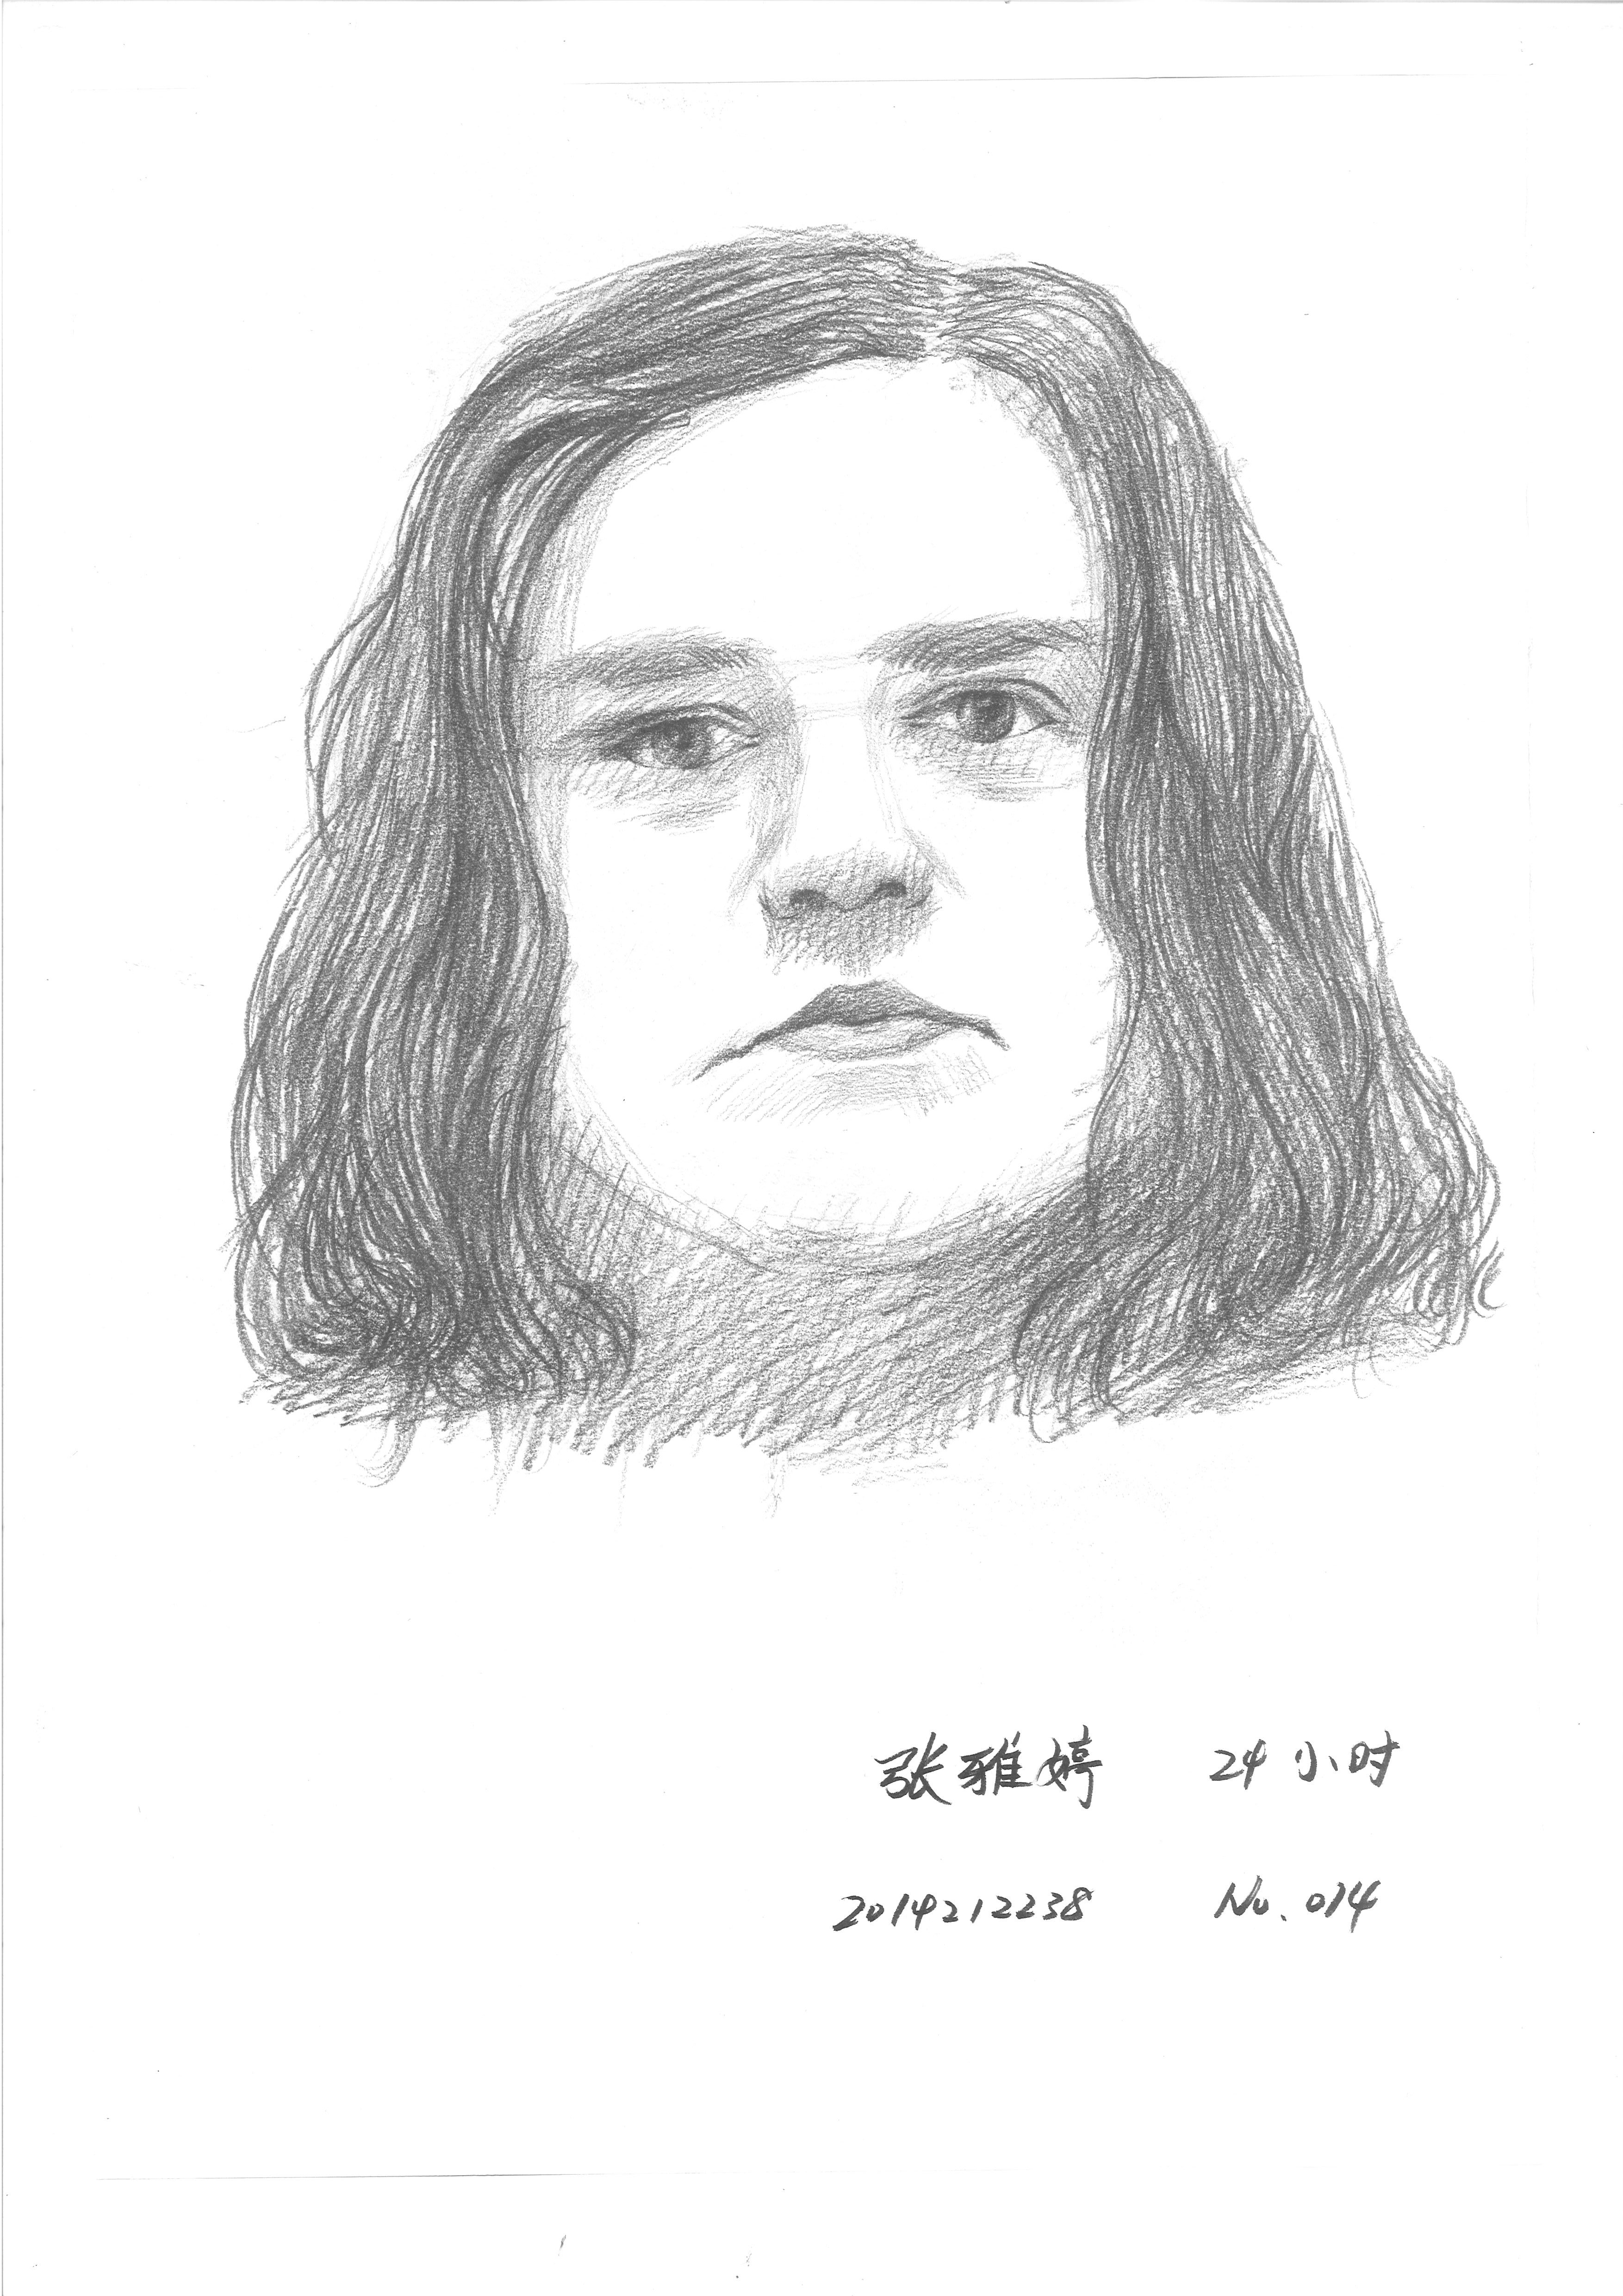 张雅婷 24小时
2014212238 No.014